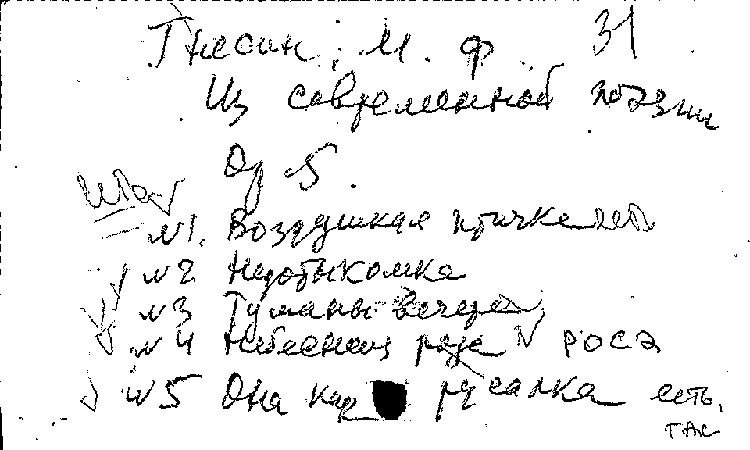 Гнесин, М. Ф. 31
Из современной поэзии
Op 5.
№1. Воздушная птичка
№2 Недотыкомка
№3 Туманы вечера
№4 Небесная роза роса
№5 Она как русалка есть,
так